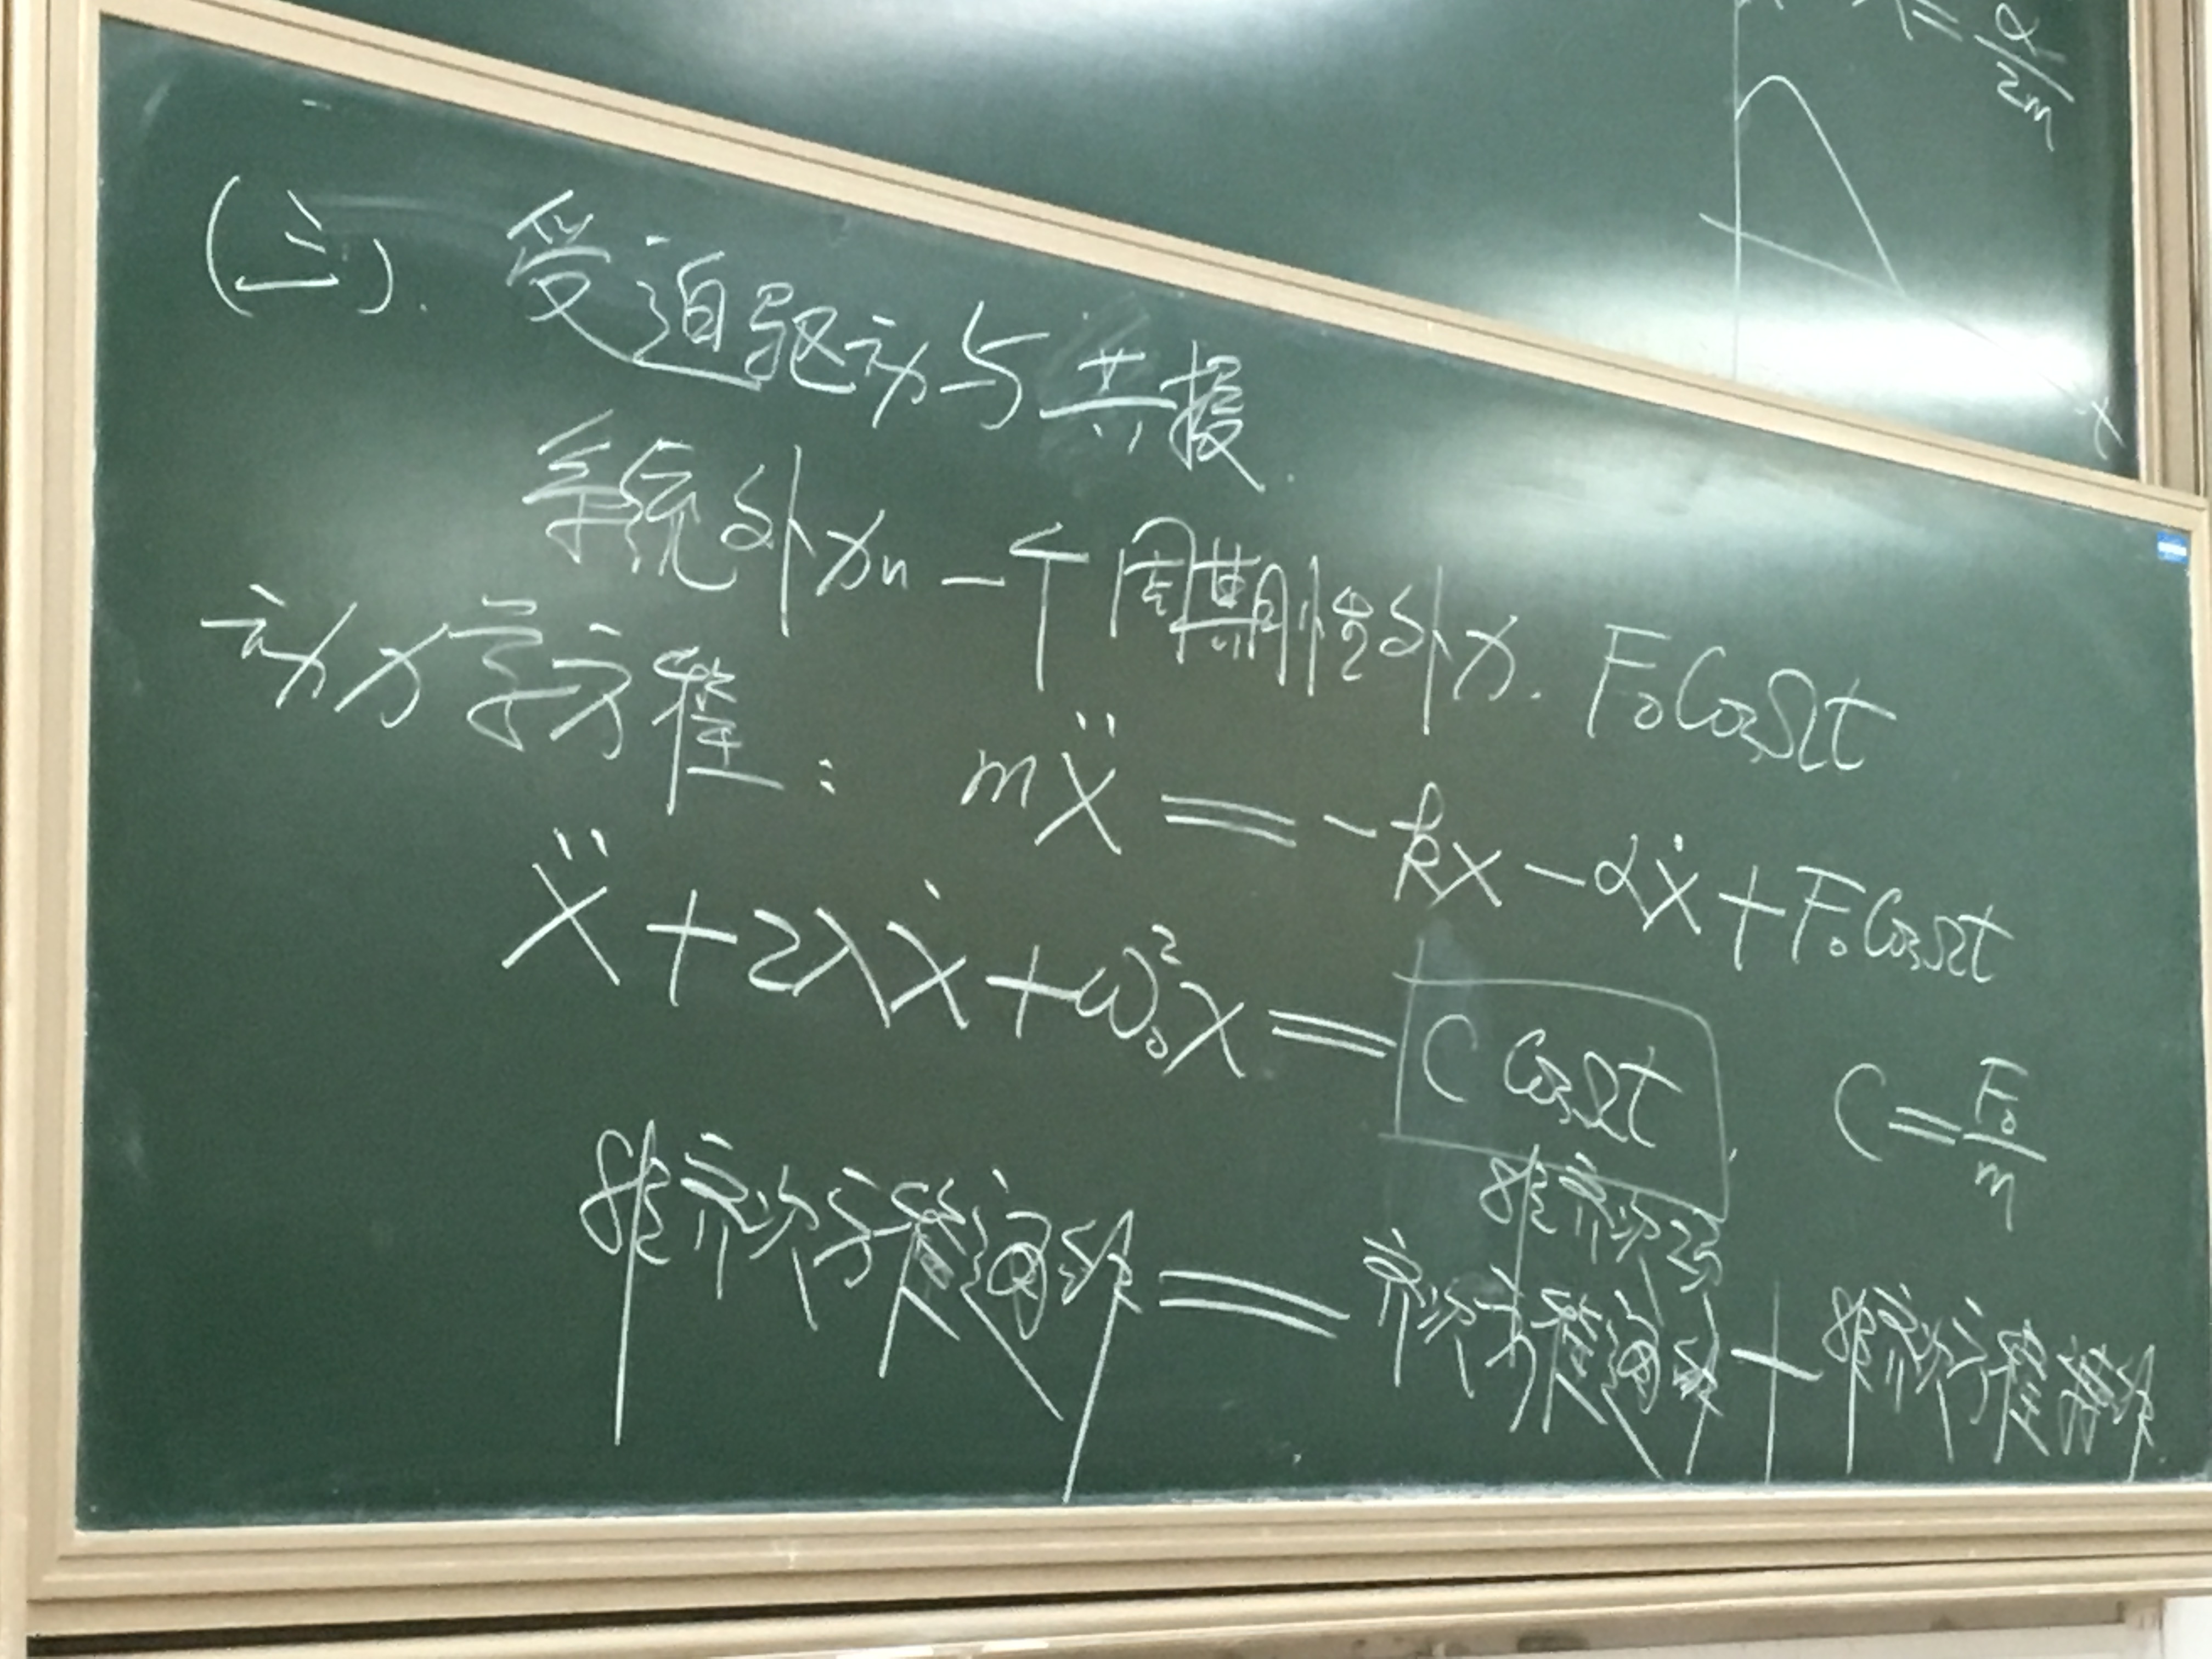 λ = α/2m
x
(三). 受迫驱动与共振.
系统外加一个周期性外力. F₀CosΩt
动力学方程: mẍ = -kx - αẋ + F₀CosΩt
ẍ + 2λẋ + ω₀²x = C CosΩt C = F₀/m
非齐次项
非齐次方程通解 = 齐次方程通解 + 非齐次方程特解